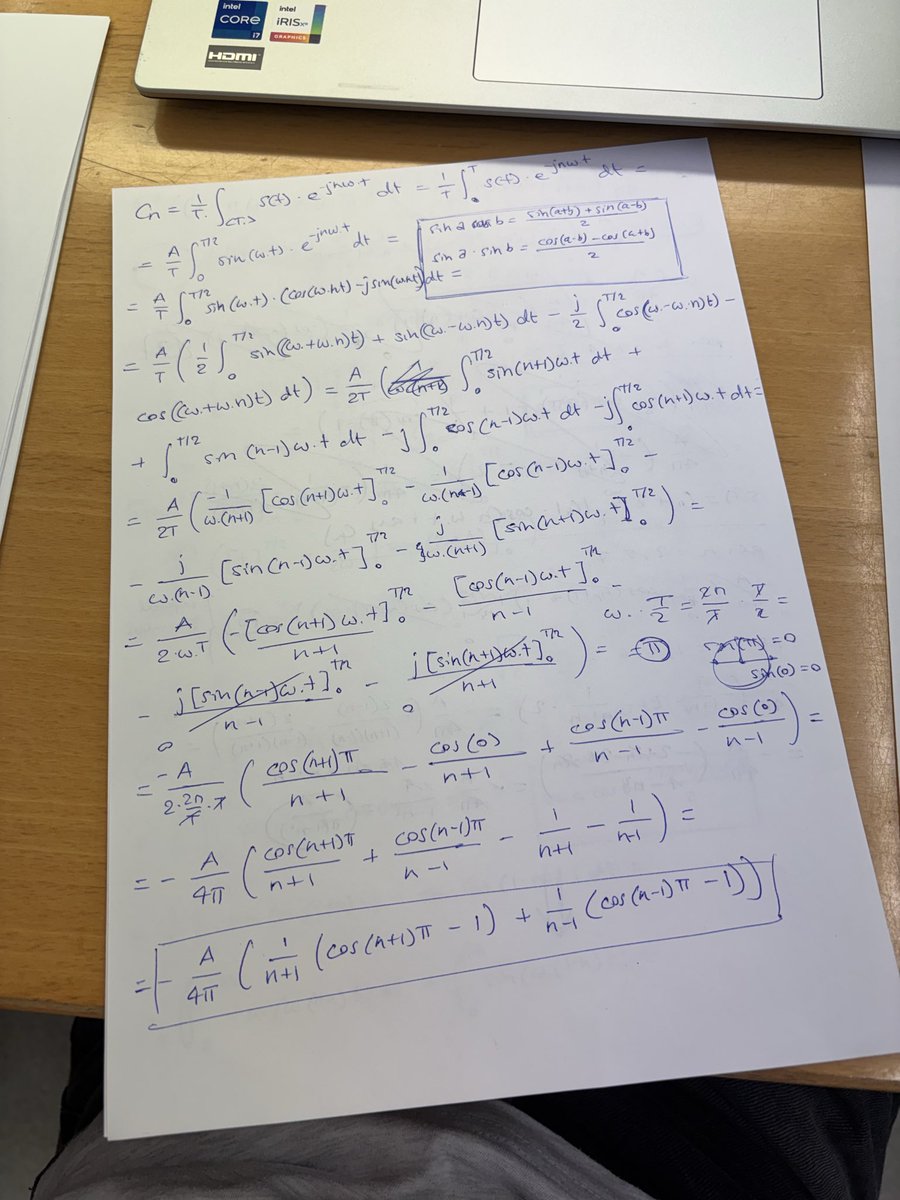 intel CORE i7
intel iRISxe GRAPHICS
HDMI
Cn = 1/T. ∫<T.> s(t) · e^-jnω.t dt = 1/T ∫.^T s(t) · e^-jnω.t dt =
= A/T ∫0^T/2 sin(ω.t) · e^-jnω.t dt =
sin a cos b = (sin(a+b) + sin(a-b))/2
sin a · sin b = (cos(a-b) - cos(a+b))/2
= A/T ∫0^T/2 sin(ω.t) · (cos(ω.nt) - jsin(ω.nt)) dt =
= A/T (1/2 ∫0^T/2 sin((ω.+ω.n)t) + sin((ω.-ω.n)t) dt - j/2 ∫0^T/2 cos((ω.-ω.n)t) -
cos((ω.+ω.n)t) dt) = A/2T ( ∫0^T/2 sin(n+1)ω.t dt +
+ ∫0^T/2 sin(n-1)ω.t dt - j∫0^T/2 cos(n-1)ω.t dt - j∫0^T/2 cos(n+1)ω.t dt =
= A/2T (-1/ω.(n+1) [cos(n+1)ω.t]0^T/2 - 1/ω.(n-1) [cos(n-1)ω.t]0^T/2 -
- j/ω.(n-1) [sin(n-1)ω.t]0^T/2 - j/ω.(n+1) [sin(n+1)ω.t]0^T/2 ) =
= A/2·ω.T (-[cos(n+1)ω.t]0^T/2/n+1 - [cos(n-1)ω.t]0^T/2/n-1 -
ω. · T/2 = 2π/T · T/2 =
- j[sin(n-1)ω.t]0^T/2/n-1 - j[sin(n+1)ω.t]0^T/2/n+1 ) =
0 0
= π
sin(π)=0
sin(0)=0
= -A/2·2π/T·T ( cos(n+1)π/n+1 - cos(0)/n+1 + cos(n-1)π/n-1 - cos(0)/n-1 ) =
= - A/4π ( cos(n+1)π/n+1 + cos(n-1)π/n-1 - 1/n+1 - 1/n-1 ) =
= - A/4π ( 1/n+1 (cos(n+1)π - 1) + 1/n-1 (cos(n-1)π - 1))